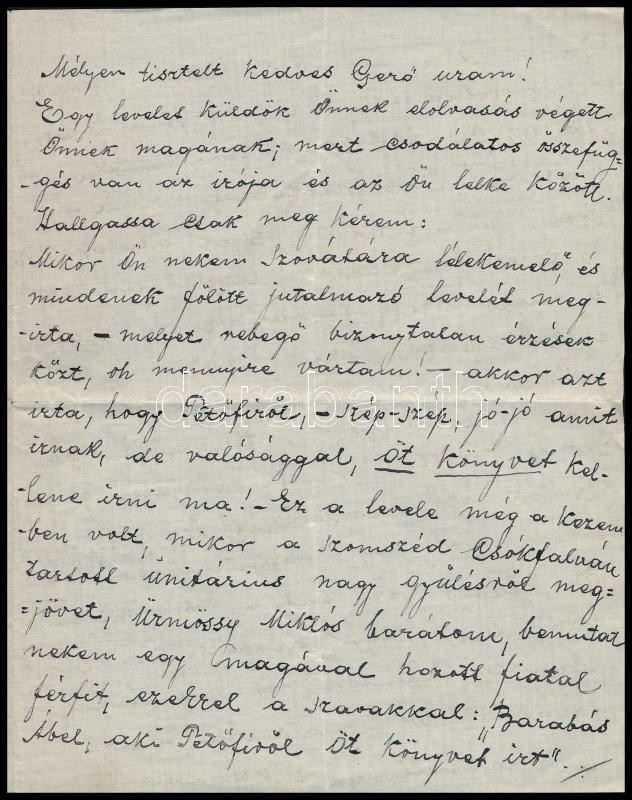 Mélyen tisztelt kedves Gerő uram!
Egy levelet küldök Önnek elolvasás végett
Önnek magának; mert csodálatos összefüg=
-gés van az irója és az Ön lelke között.
Hallgassa csak meg kérem:
Mikor Ön nekem Szovátára lélekemelő és
mindenek fölött jutalmazó levelét meg-
-irta, – melyet rebegő bizonytalan érzések
közt, oh mennyire vártam! – akkor azt
irta, hogy Petőfiről, – szép-szép, jó-jó amit
irnak, de valósággal, öt könyvet kel-
-lene irni ma! – Ez a levele még a kezem
-ben volt, mikor a szomszéd Csókfalván
tartott únitárius nagy gyülésről meg=
=jövet, Ürmössy Miklós barátom, bemutat
nekem egy magával hozott fiatal
férfit, ezekkel a szavakkal: „Barabás
Ábel, aki Petőfiről öt könyvet irt"...
darabanth